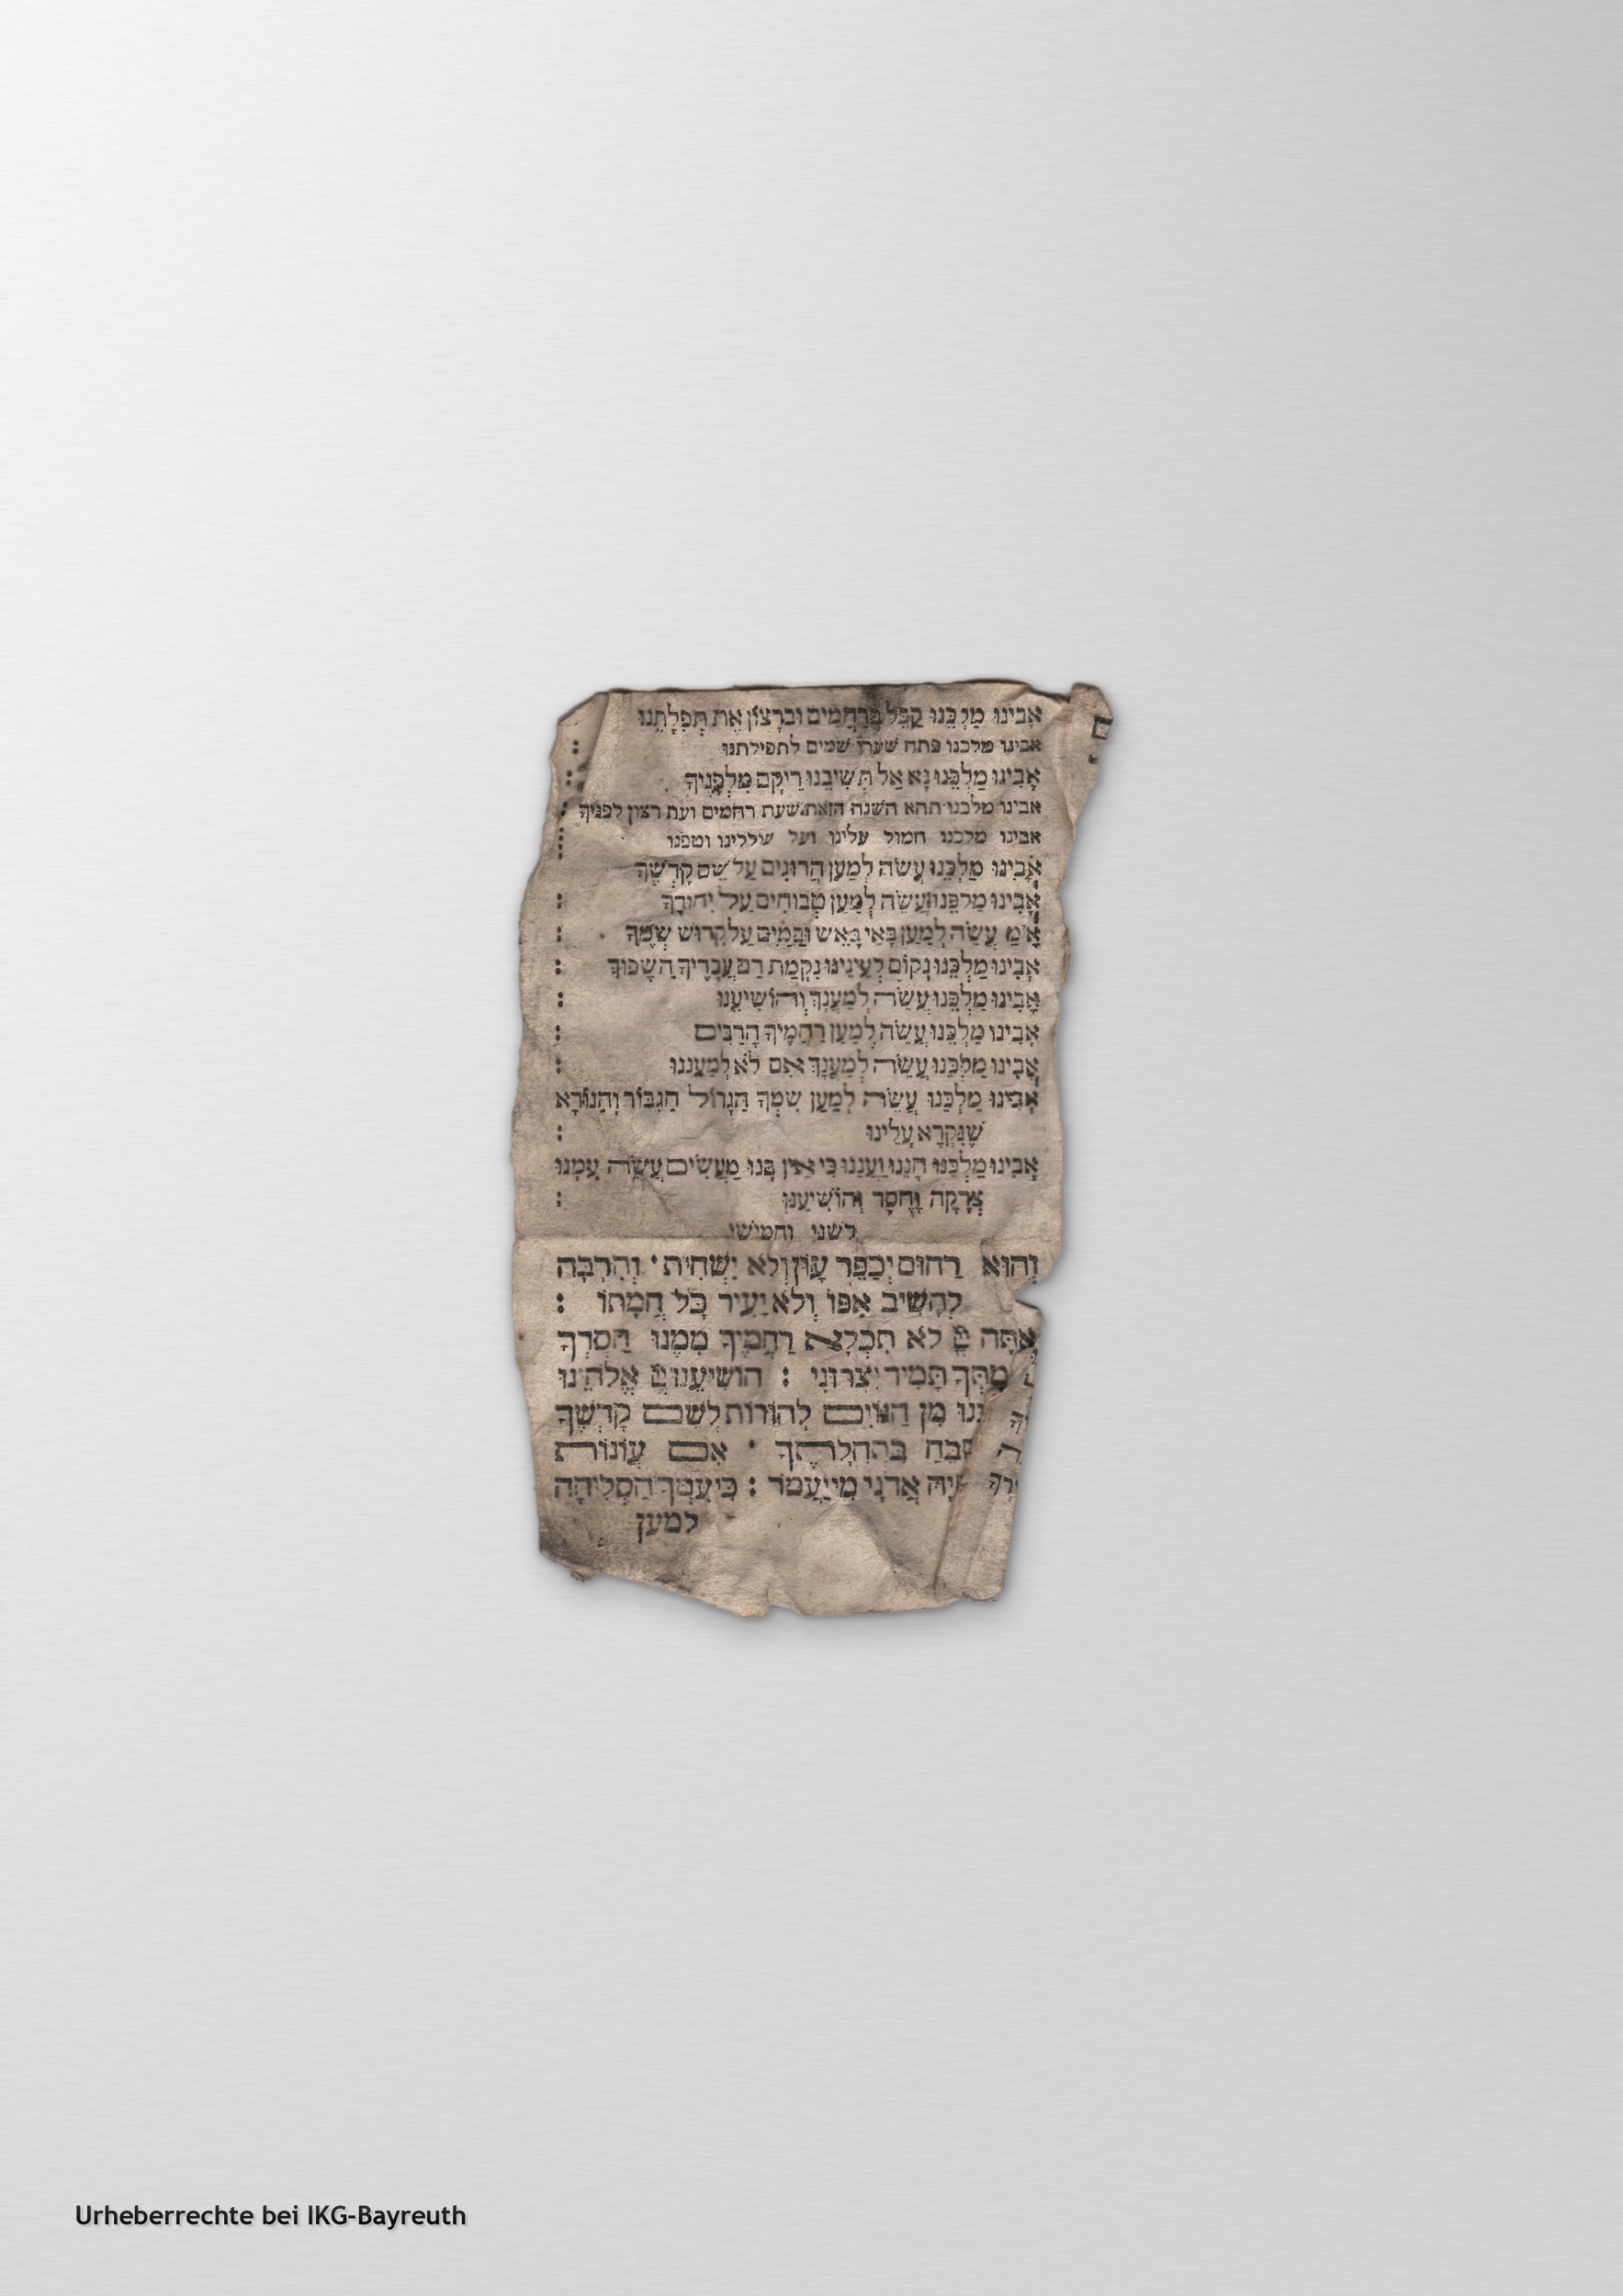 אָבִינוּ מַלְכֵּנוּ קַבֵּל בְּרַחֲמִים וּבְרָצוֹן אֶת תְּפִלָּתֵנוּ
אבינו מלכנו פתח שערי שמים לתפילתנו :
אָבִינוּ מַלְכֵּנוּ נָא אַל תְּשִׁיבֵנוּ רֵיקָם מִלְּפָנֶיךָ :
אבינו מלכנו תהא השנה הזאת שעת רחמים ועת רצון לפניך :
אבינו מלכנו חמול עלינו ועל עוללינו וטפנו :
אָבִינוּ מַלְכֵּנוּ עֲשֵׂה לְמַעַן הֲרוּגִים עַל שֵׁם קָדְשֶׁךָ
אָבִינוּ מַלְכֵּנוּ עֲשֵׂה לְמַעַן טְבוּחִים עַל יִחוּדֶךָ :
אָ֗מַ֗ עֲשֵׂה לְמַעַן בָּאֵי בָאֵשׁ וּבַמַּיִם עַל קִדּוּשׁ שְׁמֶךָ :
אָבִינוּ מַלְכֵּנוּ נְקוֹם לְעֵינֵינוּ נִקְמַת דַּם עֲבָדֶיךָ הַשָּׁפוּךְ :
אָבִינוּ מַלְכֵּנוּ עֲשֵׂה לְמַעֲנָךְ וְהוֹשִׁיעֵנוּ :
אָבִינוּ מַלְכֵּנוּ עֲשֵׂה לְמַעַן רַחֲמֶיךָ הָרַבִּים :
אָבִינוּ מַלְכֵּנוּ עֲשֵׂה לְמַעֲנָךְ אִם לֹא לְמַעֲנֵנוּ :
אָבִינוּ מַלְכֵּנוּ עֲשֵׂה לְמַעַן שִׁמְךָ הַגָּדוֹל הַגִּבּוֹר וְהַנּוֹרָא
שֶׁנִּקְרָא עָלֵינוּ :
אָבִינוּ מַלְכֵּנוּ חָנֵּנוּ וַעֲנֵנוּ כִּי אֵין בָּנוּ מַעֲשִׂים עֲשֵׂה עִמָּנוּ
צְדָקָה וָחֶסֶד וְהוֹשִׁיעֵנוּ :
לשני וחמישי
וְהוּא רַחוּם יְכַפֵּר עָוֹן וְלֹא יַשְׁחִית · וְהִרְבָּה
לְהָשִׁיב אַפּוֹ וְלֹא יָעִיר כָּל חֲמָתוֹ :
אַתָּה יְ֗יָ לֹא תִכְלָא רַחֲמֶיךָ מִמֶּנּוּ חַסְדְּךָ
מִתְּךָ תָּמִיד יִצְּרוּנִי : הוֹשִׁיעֵנוּ יְיָ אֱלֹהֵינוּ
נוּ מִן הַגּוֹיִם לְהוֹדוֹת לְשֵׁם קָדְשֶׁךָ
בֵּחַ בִּתְהִלָּתֶךָ · אִם עֲוֹנוֹת
יָהּ אֲדֹנָי מִי יַעֲמֹד : כִּי עִמְּךָ הַסְּלִיחָה
למען
Urheberrechte bei IKG-Bayreuth